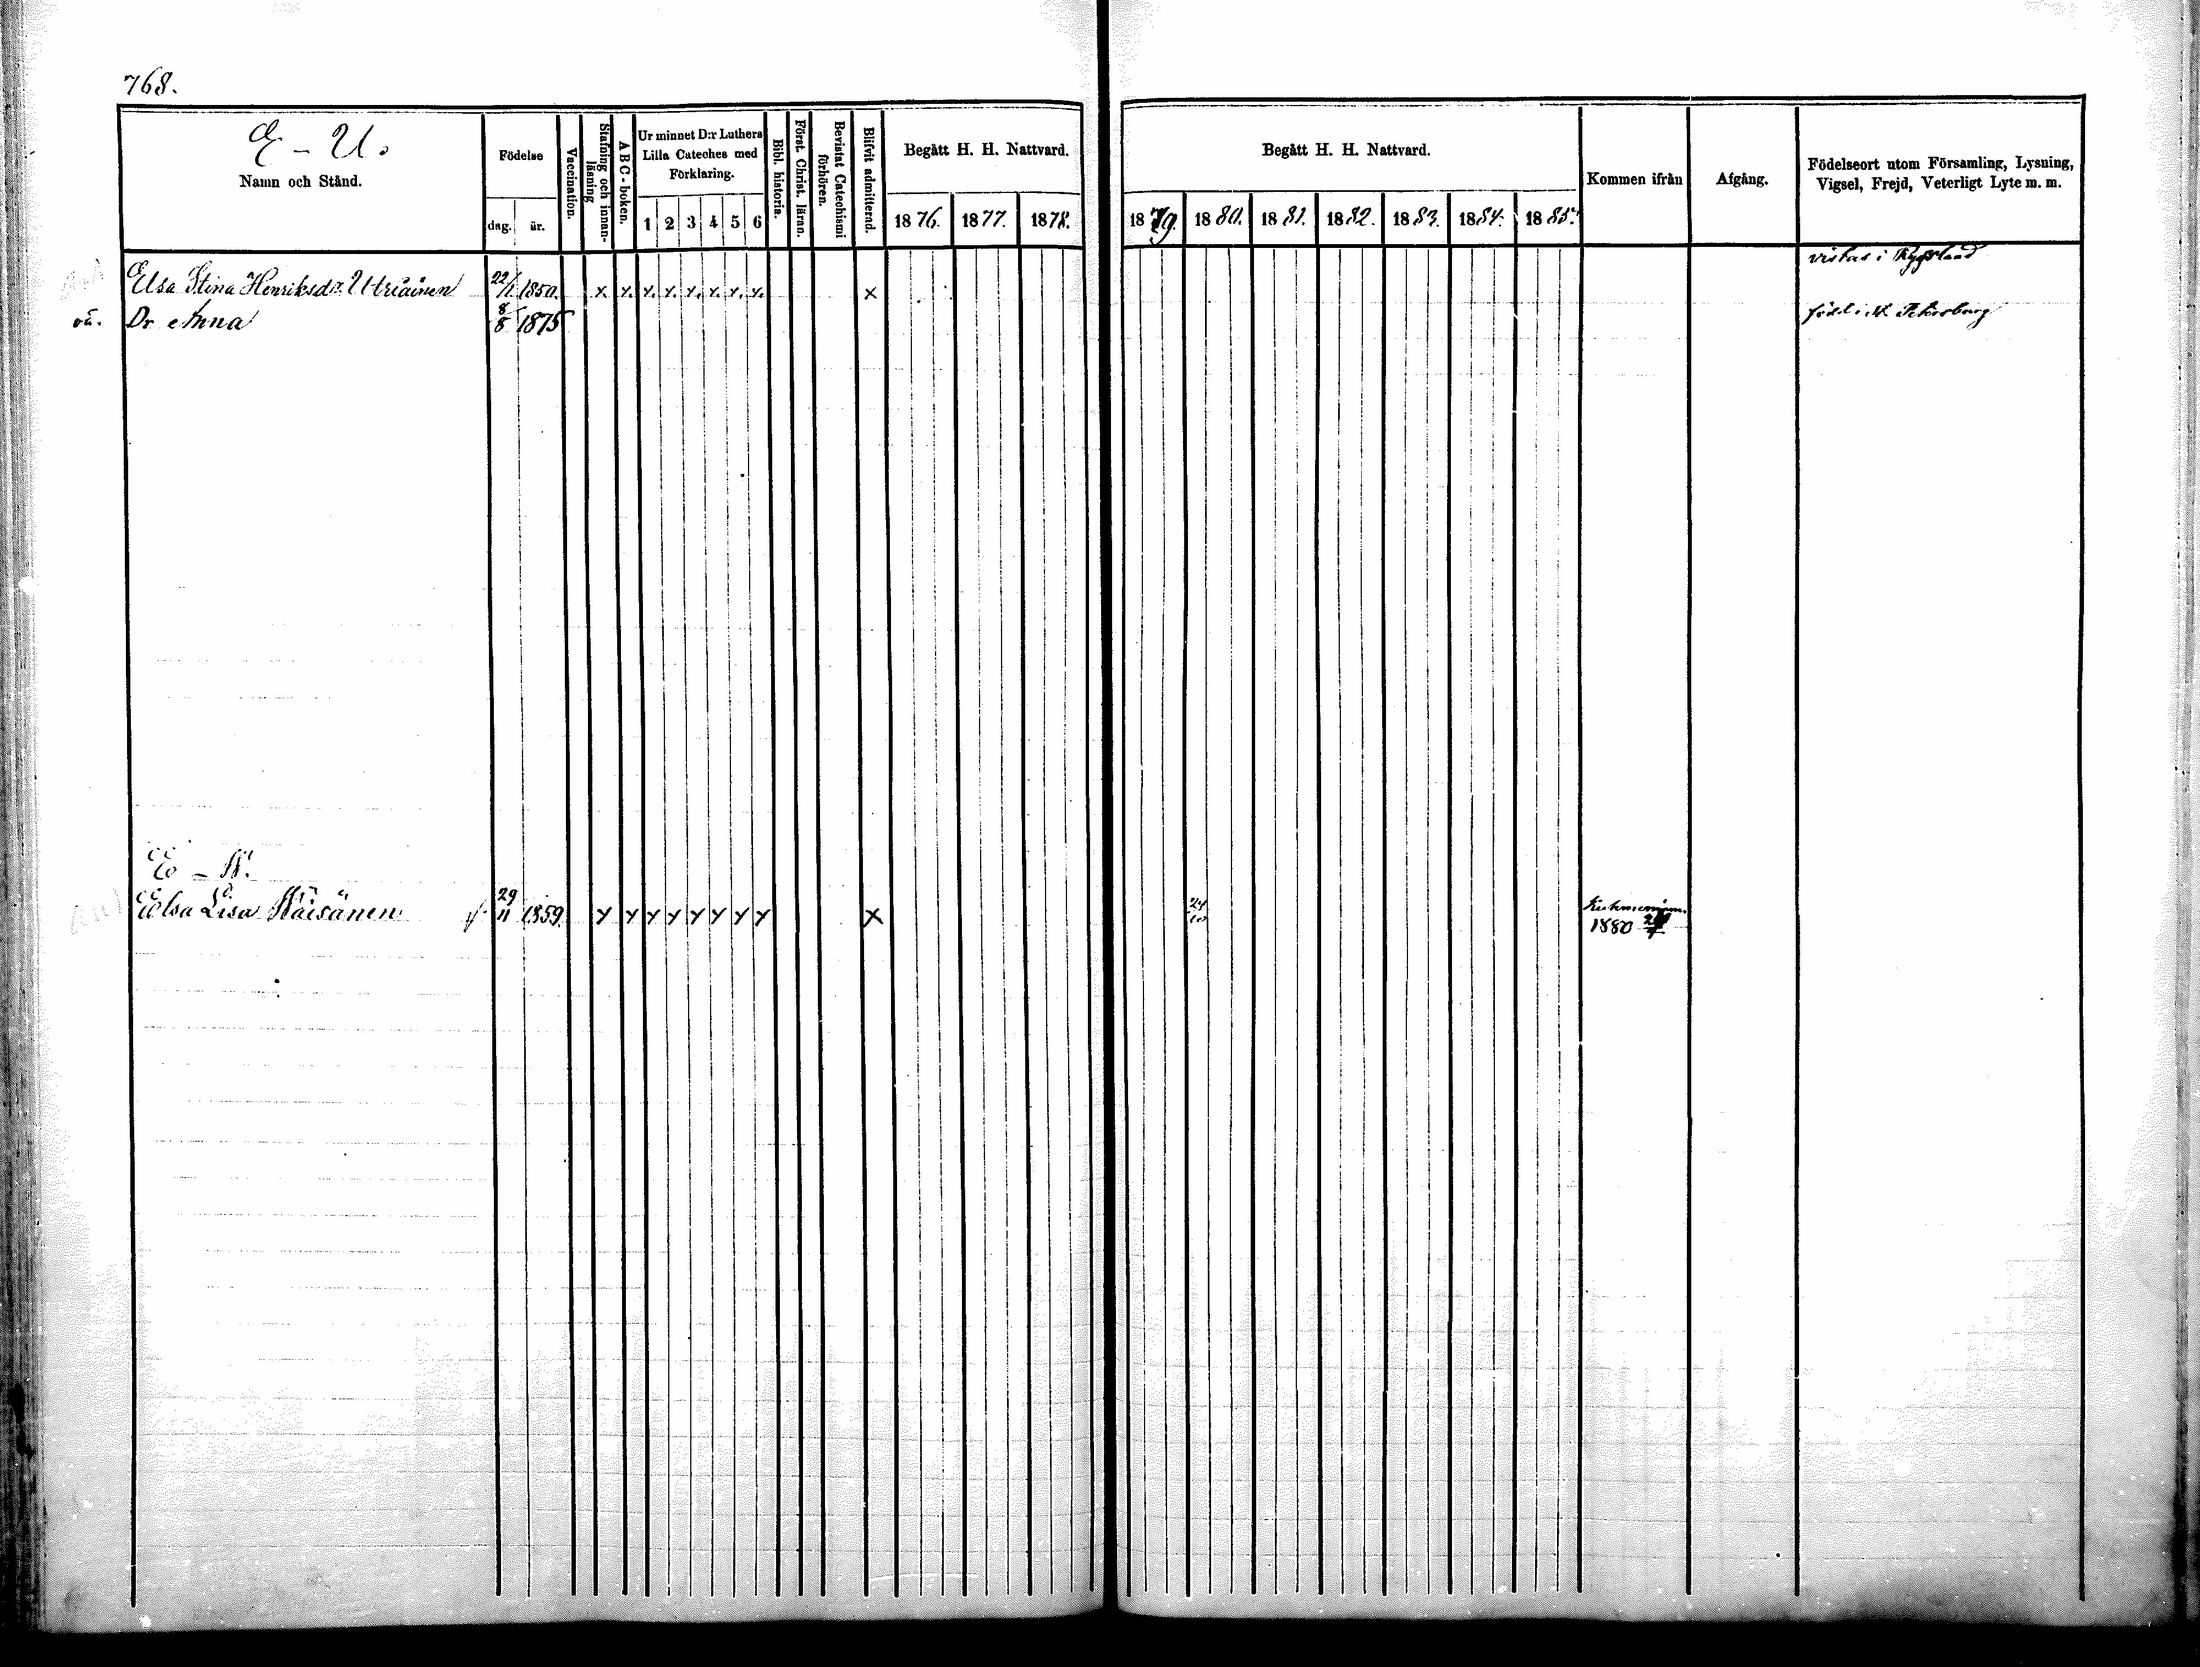 768.
E - U.
Namn och Stånd.
Födelse
dag. år.
Vaccination.
Stafning och innanläsning
ABC-boken.
Ur minnet D:r Luthers Lilla Cateches med Förklaring.
1 2 3 4 5 6
Bibl. historia.
Först. Christ. läran.
Bevistat Catechismi förhören.
Blifvit admitterad.
Begått H. H. Nattvard.
1876. 1877. 1878.
Begått H. H. Nattvard.
1879. 1880. 1881. 1882. 1883. 1884. 1885.
Kommen ifrån
Afgång.
Födelseort utom Församling, Lysning, Vigsel, Frejd, Veterligt Lyte m. m.
vistas i Ryssland
Elsa Stina Henriksdr Utriäinen 22/1 1850. x x x x x x x x x
oä. Dr Anna 8/8 1875 född i St Petersburg
E - W.
Elsa Lisa Väisänen 29/11 1859. x x x x x x x x x 24/10
1880